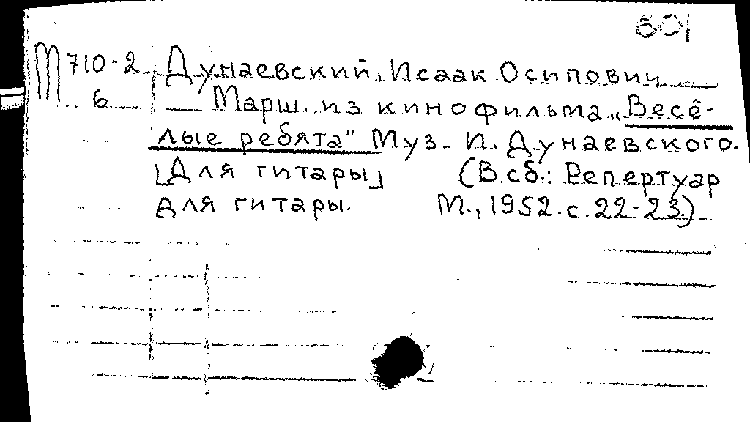 801
М 710-2 Дунаевский, Исаак Осипович
6 Марш из кинофильма „Весё-
лые ребята" Муз. И. Дунаевского.
[Для гитары] (В сб.: Репертуар
для гитары. М., 1952. с. 22-23)